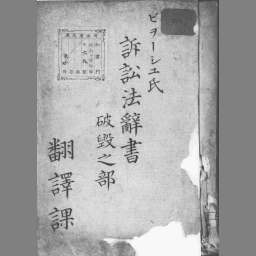 ビヲーシヱ氏
訴訟法辭書
破毀之部
翻譯課